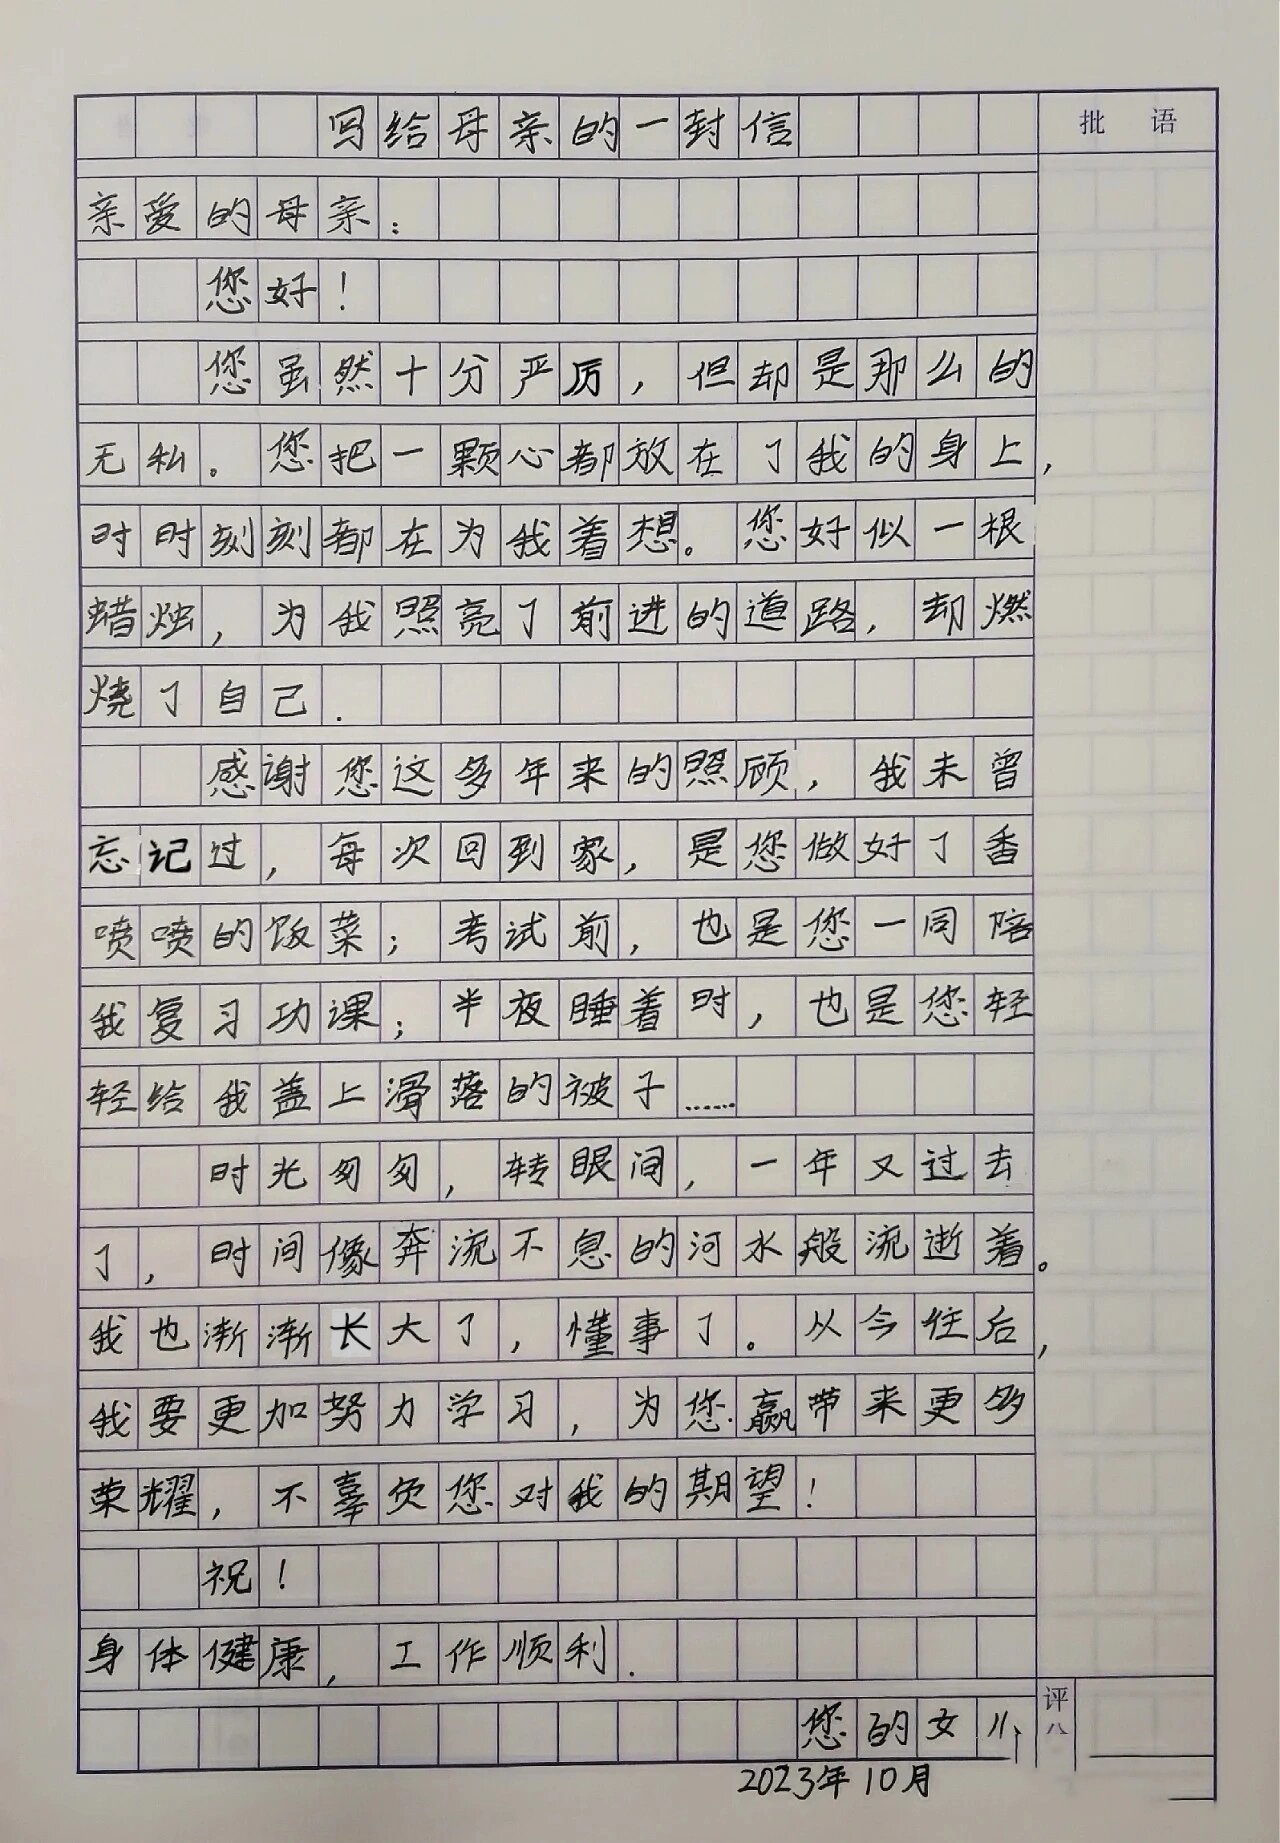 写给母亲的一封信
批 语
亲爱的母亲：
您好！
您虽然十分严厉，但却是那么的
无私。您把一颗心都放在了我的身上，
时时刻刻都在为我着想。您好似一根
蜡烛，为我照亮了前进的道路，却燃
烧了自己.
感谢您这多年来的照顾，我未曾
忘记过，每次回到家，是您做好了香
喷喷的饭菜；考试前，也是您一同陪
我复习功课；半夜睡着时，也是您轻
轻给我盖上滑落的被子……
时光匆匆，转眼间，一年又过去
了，时间像奔流不息的河水般流逝着。
我也渐渐长大了，懂事了。从今往后，
我要更加努力学习，为您赢带来更多
荣耀，不辜负您对我的期望！
祝！
身体健康，工作顺利.
您的女儿
评
2023年10月